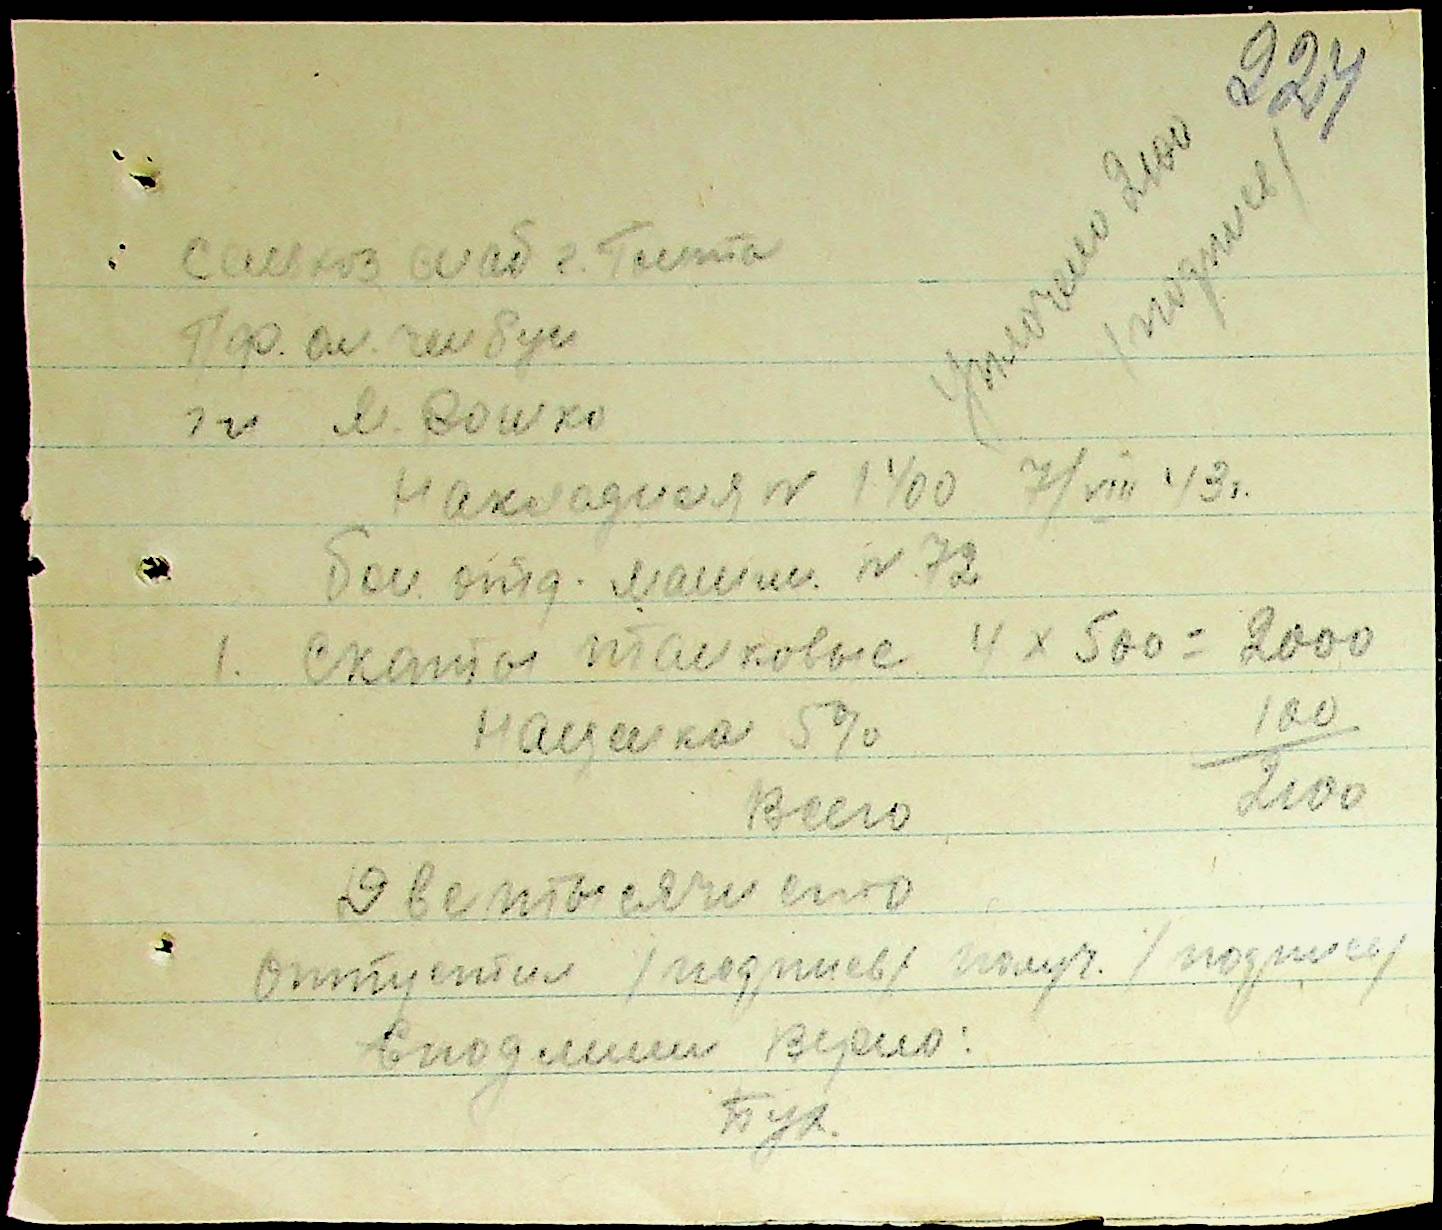 224
Уплочено 2100
/подпись/
Сельхоз снаб г. Тинта
Пр. ол. чен буи
ти М. Вошко
Накладная № 1400 7/VIII 43 г.
бои. отд. машин. № 72
1. Скаты танковые 4 x 500 = 2000
Наценка 5% 100
Всего 2100
Две тысячи сто
Отпустил /подпись/ получ. /подпись/
С подлинн верно: